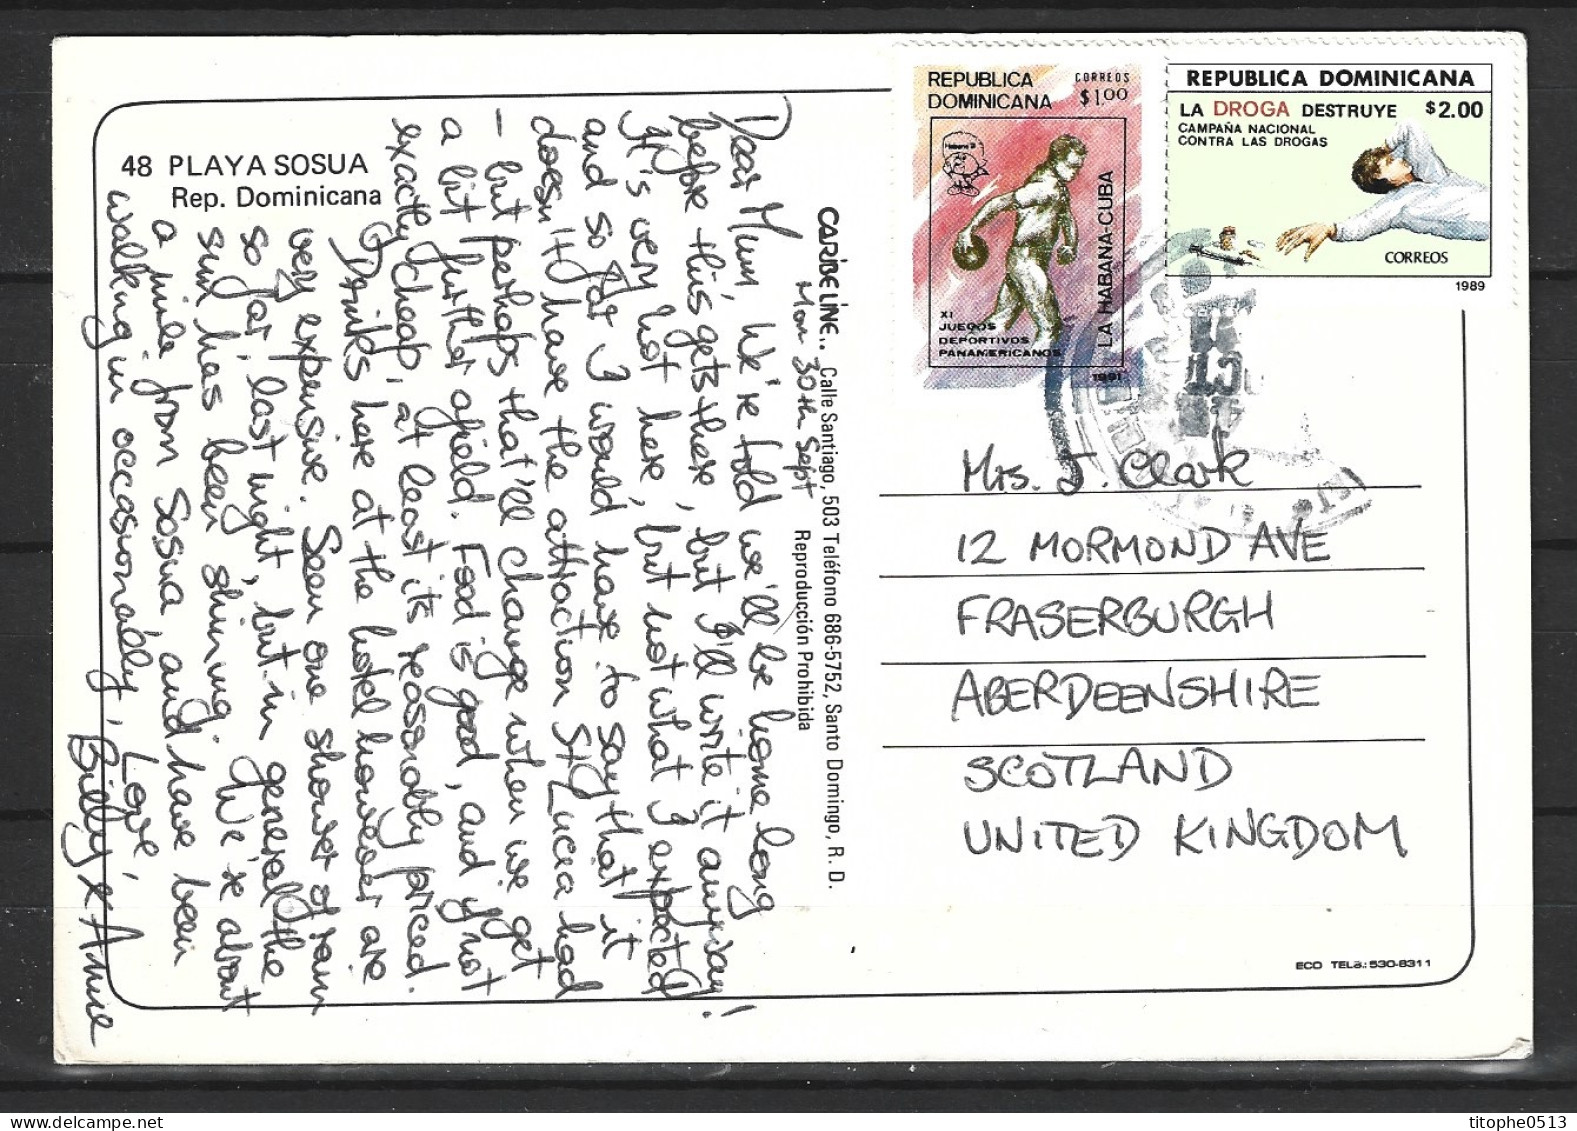 48 PLAYA SOSUA
Rep. Dominicana
CARIBE LINE.. Calle Santiago, 503 Teléfono 686-5752, Santo Domingo, R. D.
Reproducción Prohibida
Mon 30th Sept
Dear Mum, We're told we'll be home long
before this gets there, but I'll write it anyway!
It's very hot here, but not what I expected
and so far I would have to say that it
doesn't have the attraction St Lucia had
- but perhaps that'll change when we get
a bit further afield. Food is good, and if not
exactly cheap, at least its reasonably priced.
Drinks here at the hotel however are
very expensive. Seen one shower of rain
so far, last night, but in general the
sun has been shining. We're about
a mile from Sosua and have been
walking in occasionally. Love,
Billy & Anne
REPUBLICA
DOMINICANA
CORREOS
$1.00
Habana 91
LA HABANA-CUBA
XI
JUEGOS
DEPORTIVOS
PANAMERICANOS
1991
REPUBLICA DOMINICANA
LA DROGA DESTRUYE $2.00
CAMPAÑA NACIONAL
CONTRA LAS DROGAS
CORREOS
1989
Mrs. J. Clark
12 MORMOND AVE
FRASERBURGH
ABERDEENSHIRE
SCOTLAND
UNITED KINGDOM
ECO TELS.: 530-8311
titophe0513